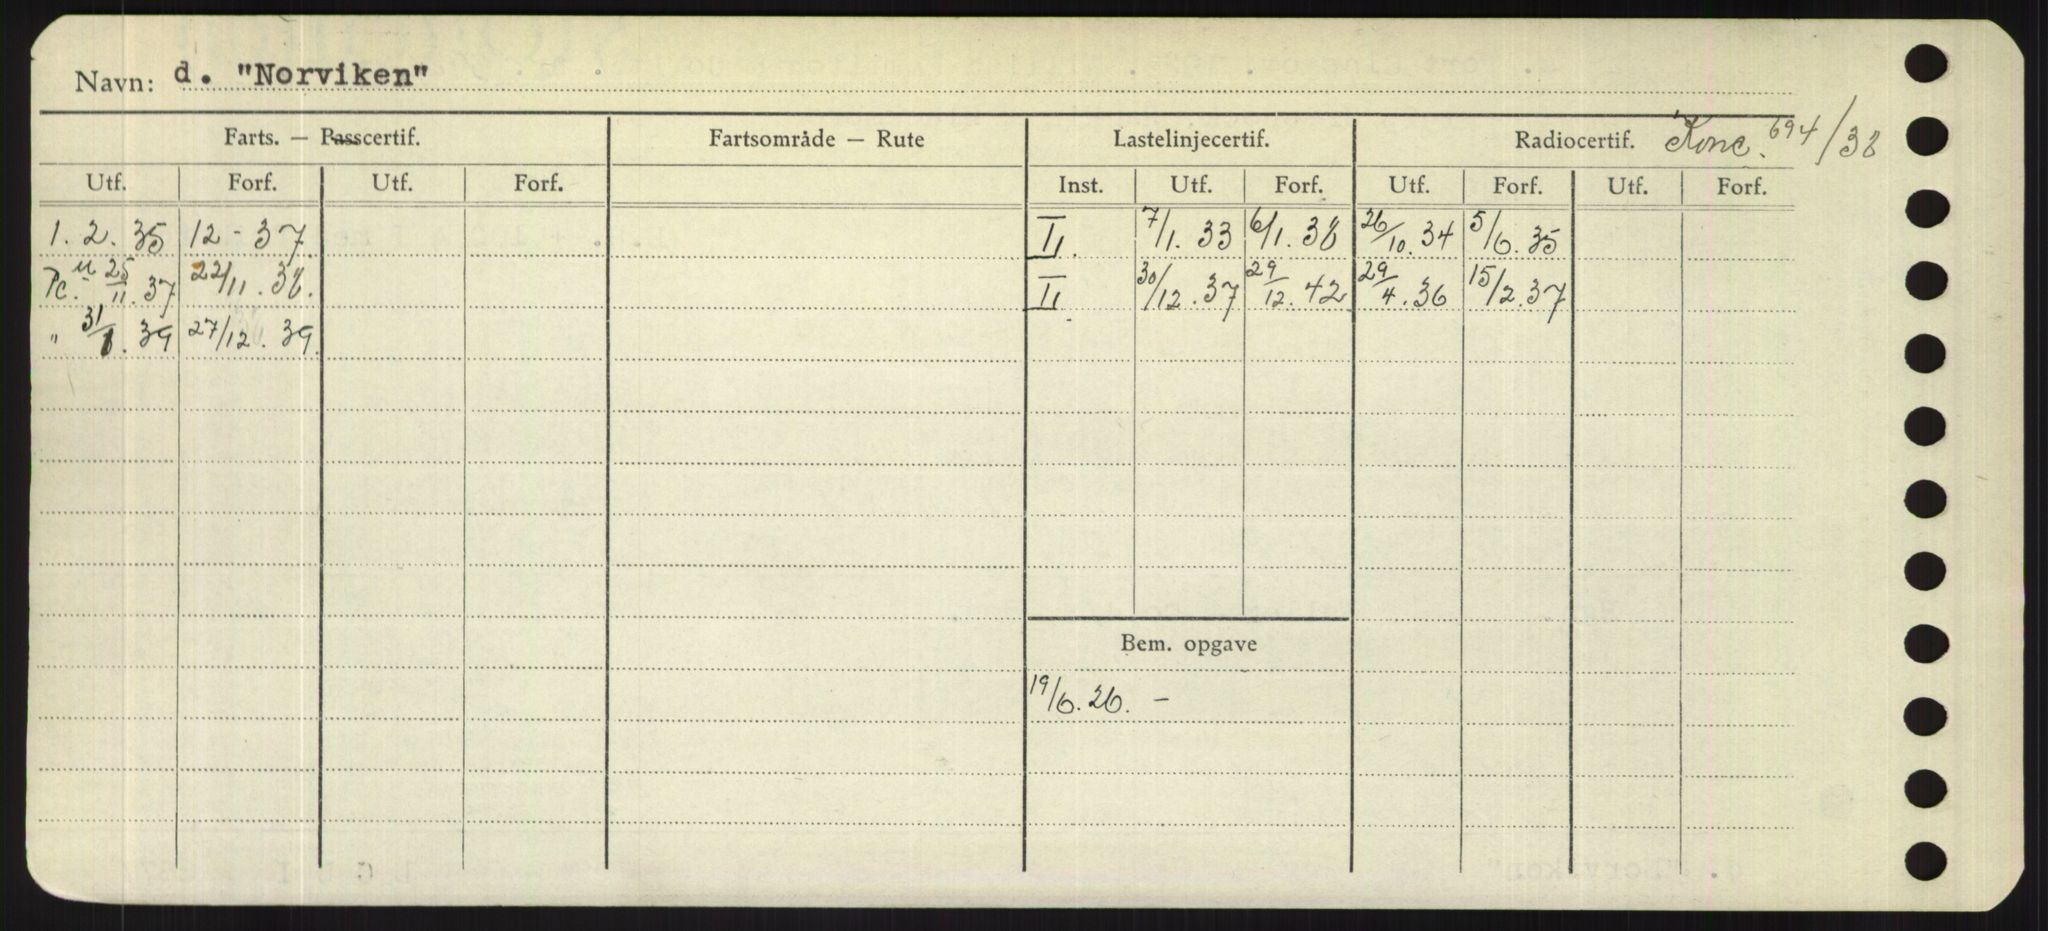 Navn: d. "Norviken"
Farts. — Passcertif. Fartsområde — Rute Lastelinjecertif. Radiocertif. Konc. 694/38
Utf. Forf. Utf. Forf. Inst. Utf. Forf. Utf. Forf. Utf. Forf.
1. 2. 35 12 - 37. II. 7/1. 33 6/1. 38 26/10. 34 5/6. 35
Pc. 25/11. 37 22/11. 38. II 30/12. 37 29/12. 42 29/4. 36 15/2. 37
" 31/1. 39 27/12. 39.
Bem. opgave
19/6. 26. —